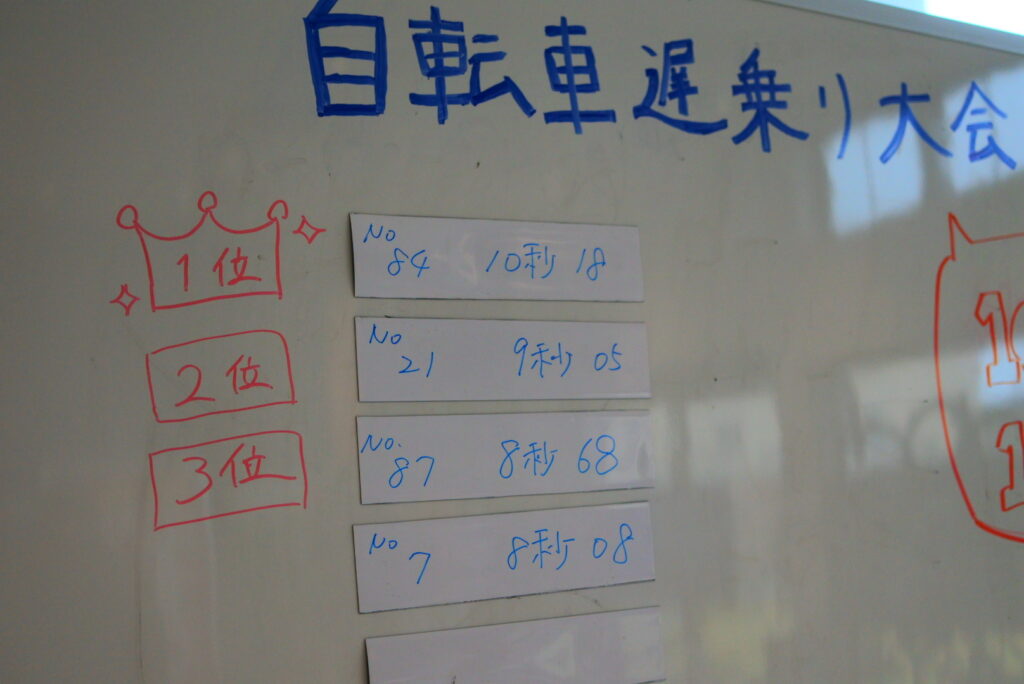 自転車遅乗り大会
1位 No 84 10秒18
2位 No 21 9秒05
3位 No. 87 8秒68
No 7 8秒08